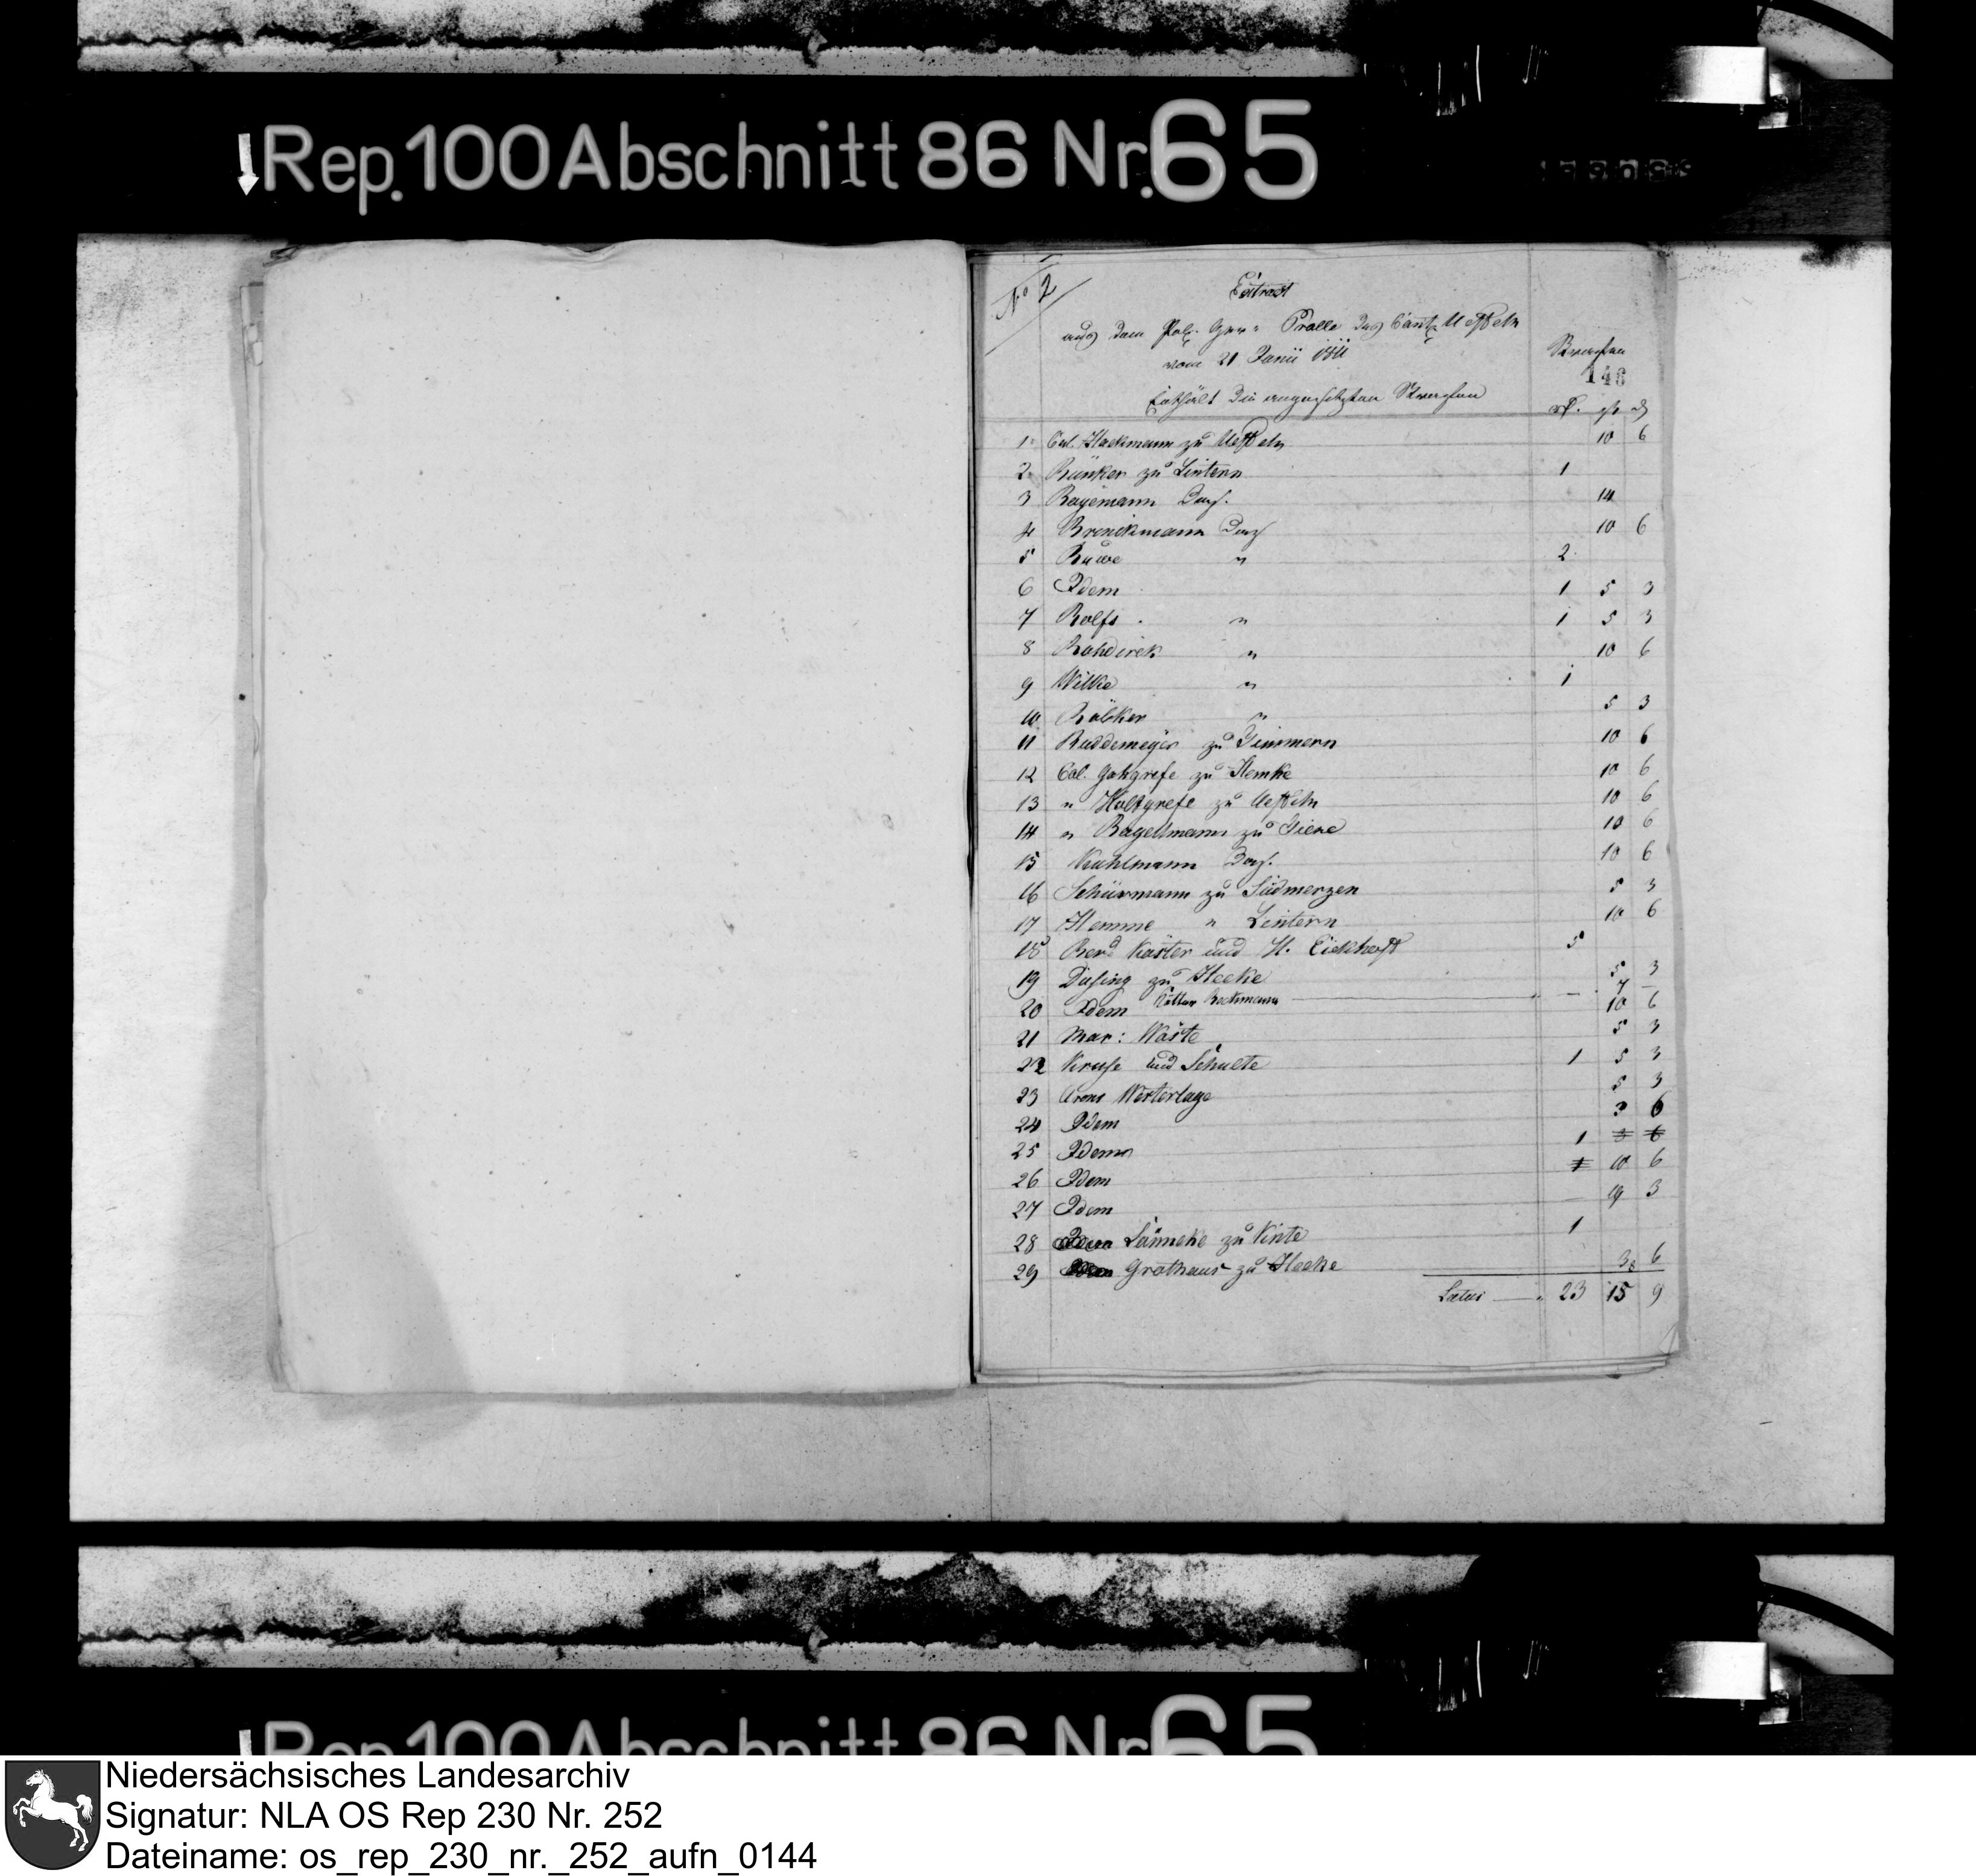 Rep. 100 Abschnitt 86 Nr. 65
No 2
Extract
aus dem Pol. Ger. Prolle des Cant. Ueffeln
vom 21 Junii 1811
Enthält die angesetzten Strafen
Strafen
146
1 Col. Hackmann zu Ueffeln 10 6
2 Bünker zu Lintern 1
3 Das. 14
4 Das 10 6
5 Ruwe " 2
6 Idem 1 5 3
7 Rolfs " 1 5 3
8 " 10 6
9 Wilke " 1
10 " 5 3
11 Buddemeyer zu Limmern 10 6
12 Col. Gohgrefe zu Hemke 10 6
13 " Holtgrefe zu Ueffeln 10 6
14 " zu 10 6
15 Kuhlmann Das. 10 6
16 Schürmann zu Südmerzen 5 3
17 Hemme " Lintern 10 6
18 Bernd Köster und H. Eickhoff 5
19 Düsing zu Hecke 5 3
20 Idem — — 7 —
10 6
21 Mar: 5 3
22 Kruse und Schulte 1 5 3
23 Westerlage 5 3
24 Idem 3 6
25 Idem 1 3 6
26 Idem 1 10 6
27 Idem 19 3
28 zu Vinte 1
29 Grothaus zu Hecke 3 6
Latus — 23 15 9
Rep. 100 Abschnitt 86 Nr. 65
Niedersächsisches Landesarchiv
Signatur: NLA OS Rep 230 Nr. 252
Dateiname: os_rep_230_nr._252_aufn_0144